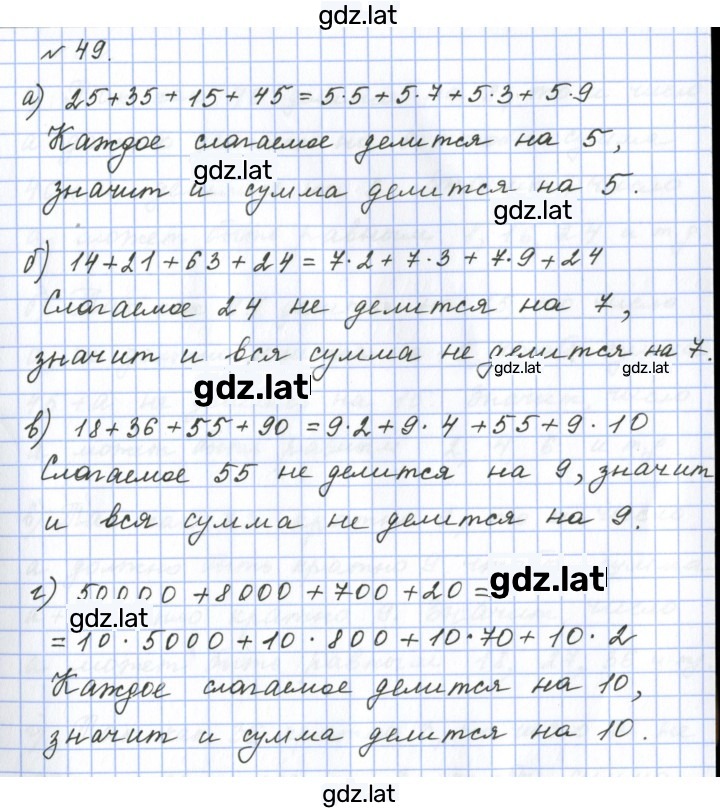 gdz.lat
№ 49.
а) 25+35+15+45=5·5+5·7+5·3+5·9
Каждое слагаемое делится на 5,
gdz.lat
значит и сумма делится на 5.
gdz.lat
б) 14+21+63+24=7·2+7·3+7·9+24
Слагаемое 24 не делится на 7,
значит и вся сумма не делится на 7.
gdz.lat gdz.lat
gdz.lat
в) 18+36+55+90=9·2+9·4+55+9·10
Слагаемое 55 не делится на 9, значит
и вся сумма не делится на 9.
г) 50000+8000+700+20= gdz.lat
gdz.lat
=10·5000+10·800+10·70+10·2
Каждое слагаемое делится на 10,
значит и сумма делится на 10.
gdz.lat